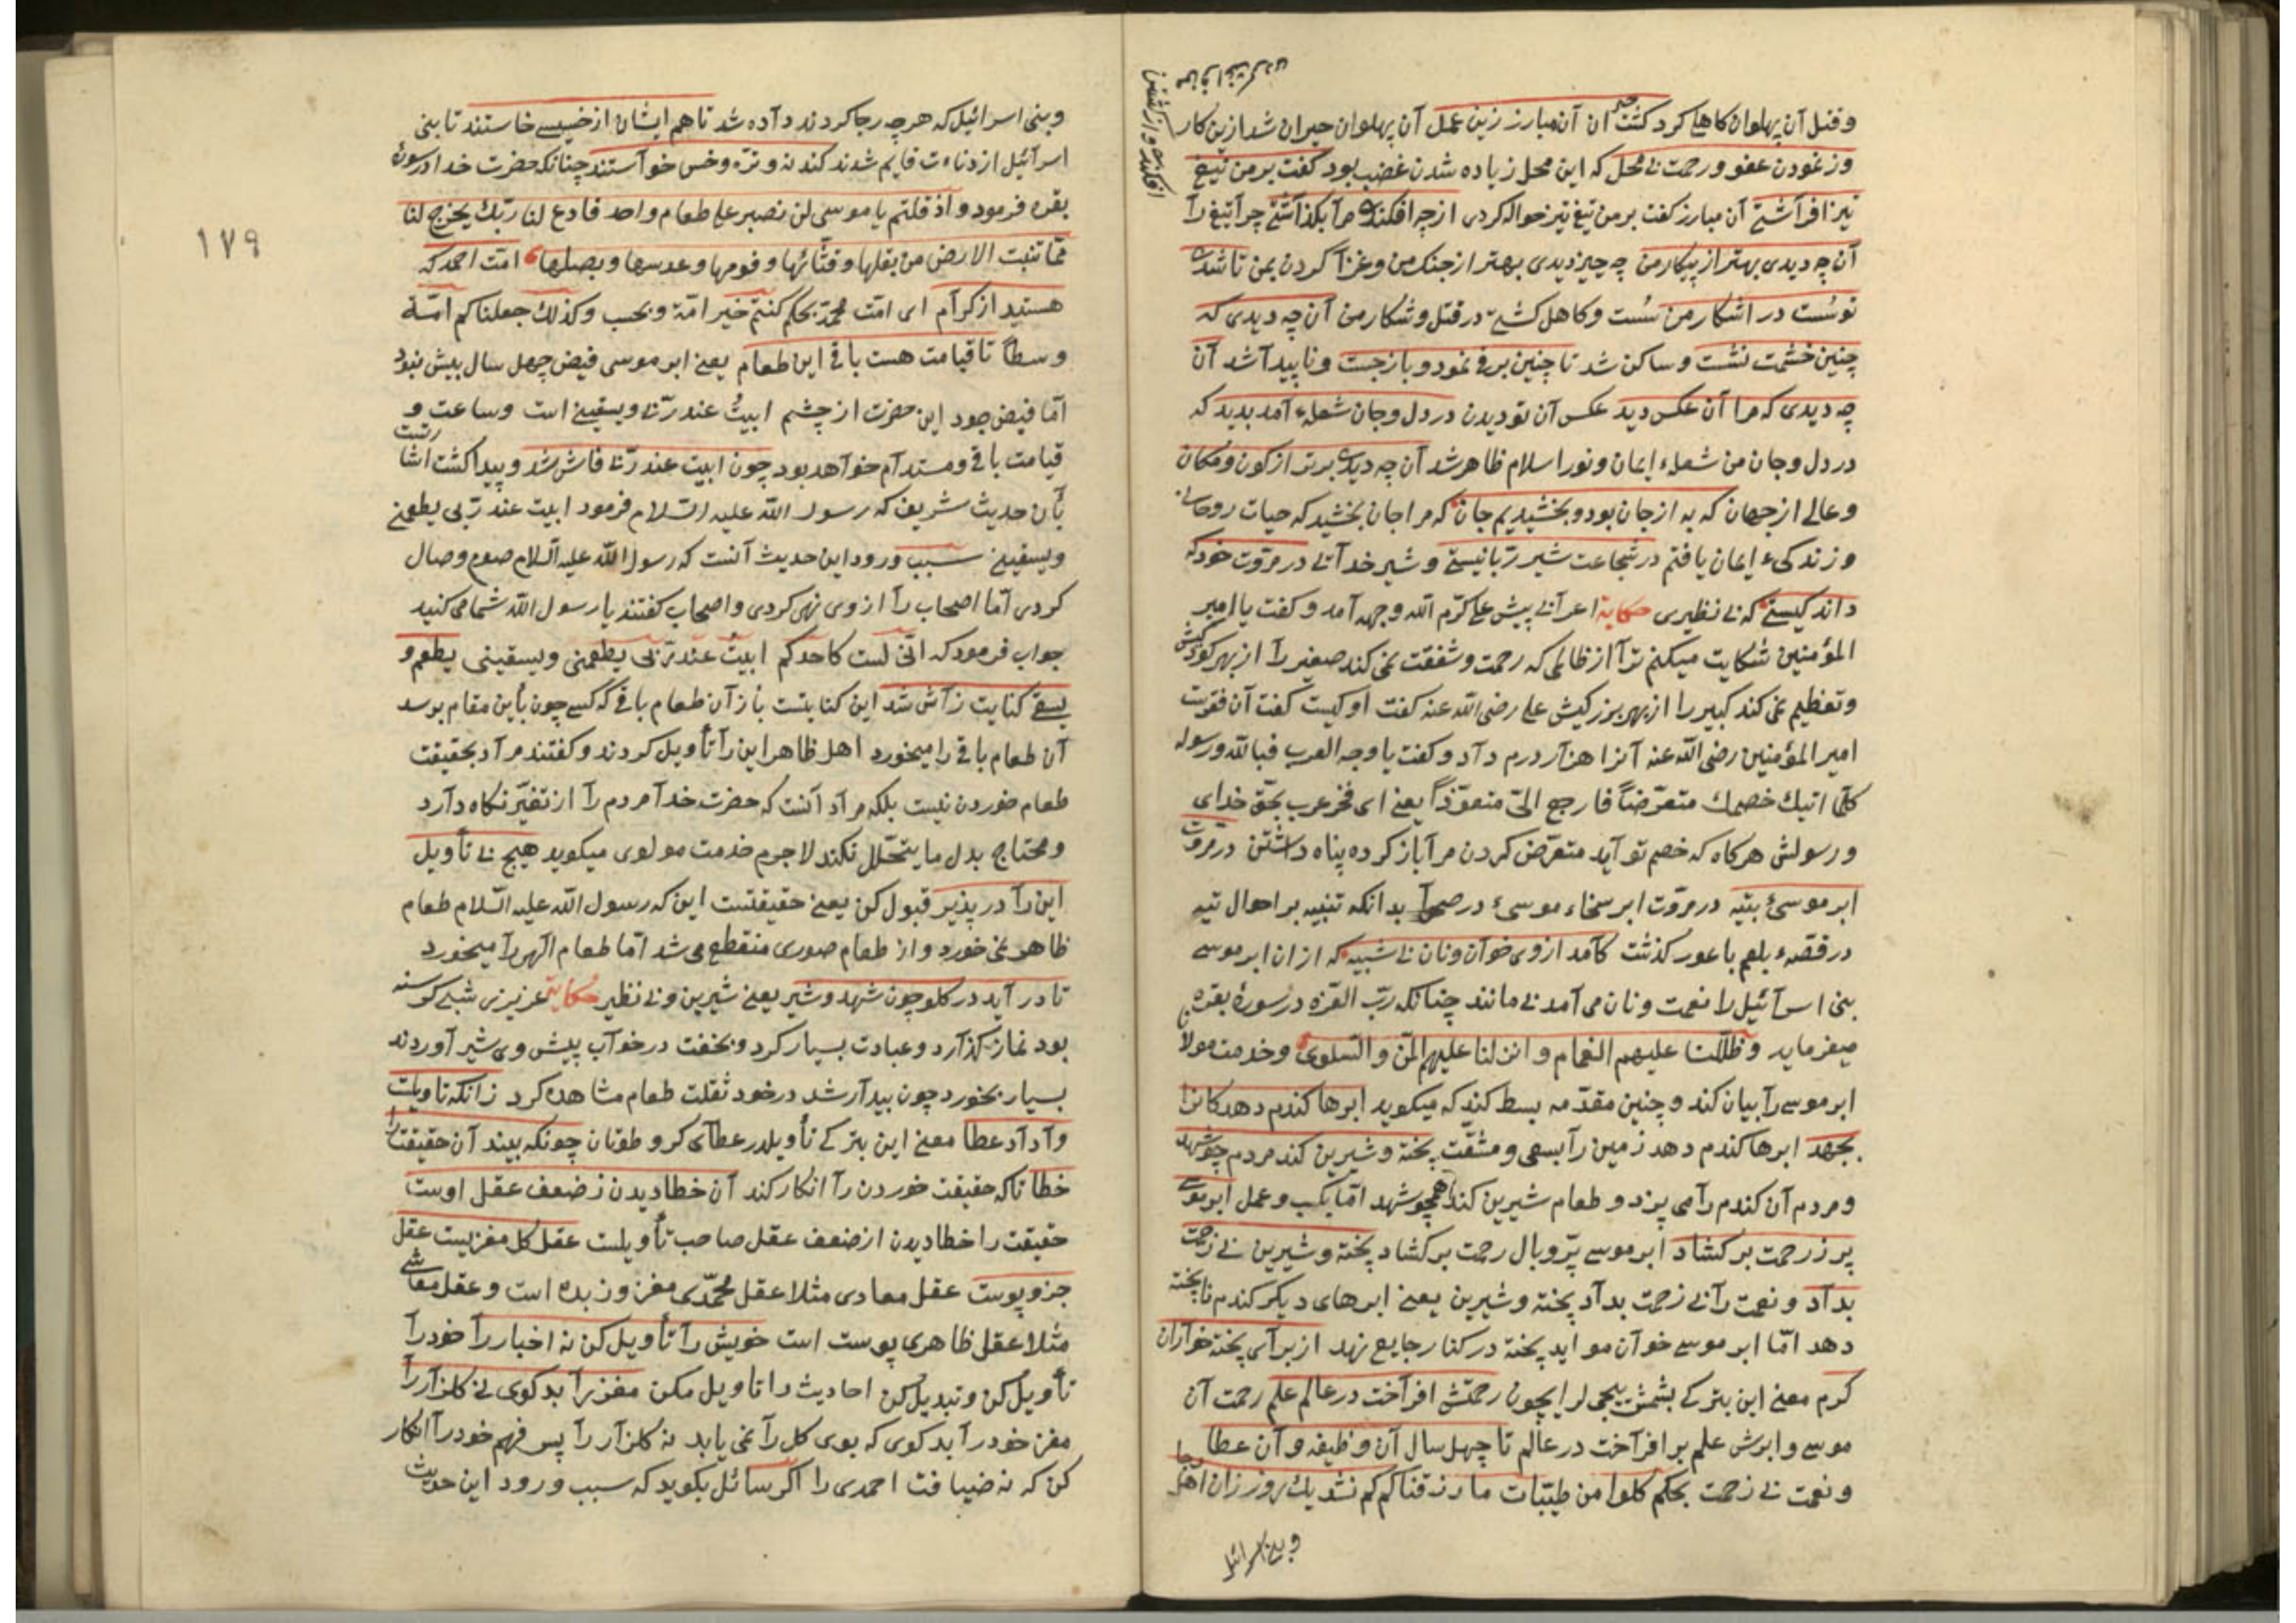 وقتل آن پهلوان کاهلی کرد کشت حیران آن مبارز زین عمل آن پهلوان حیران شد ازین کار
وز نمودن عفو و رحمت بی محل که این محل زیاده شدن غضب بود کفت بر من تیغ
تیز افراشتی آن مبارز کفت بر من تیغ تیز حواله کردی از چه افکندی مرا بکذاشتی چرا تیغ را
آن چه دیدی بهتر از پیکار من چه چیز دیدی بهتر از جنک من و غزا کردن بمن تا شدی
تو سست در اشکار من سست و کاهل کشتی در قتل و شکار من آن چه دیدی که
چنین خشمت نشست و ساکن شد تا چنین برقی نمود و باز جست و ناپیدا شد آن
چه دیدی که مرا آن عکس دید عکس آن تو دیدن در دل و جان شعلهء آمد پدید که
در دل و جان من شعلهء ایمان و نور اسلام ظاهر شد آن چه دیدی برتر از کون و مکان
و عالی از جهان که به از جان بود و بخشیدیم جان که مرا جان بخشید که حیات روحانی
و زندکیء ایمان یافتم در شجاعت شیر ربانیستی و شیر خدائی در مروت خود که
داند کیستی که بی نظیری حکایة اعرابی پیش علی کرّم الله وجهه آمد و کفت یا امیر
المؤمنین شکایت میکنم ترا از ظالمی که رحمت و شفقت نمی کند صغیر را از بهر کودکیش
وتعظیم نمی کند کبیر را از بهر بزرکیش علی رضی الله عنه کفت او کیست کفت آن فقرست
امیر المؤمنین رضی الله عنه آنرا هزار درم داد و کفت یا وجه العرب فبالله ورسوله
کلّما اتیك خصمك متعرّضاً فارجع الیّ متعوّذاً یعنی ای فخر عرب بحق خدای
و رسولش هر کاه که خصم تو آید متعرّض کردن مرا باز کرده پناه داشتن در مروت
ابر موسیٔ بتیه در مروّت ابر سخاء موسیٔ در صحرا بدانکه تنبیه بر احوال تیه
در قصهء بلعم باعور کذشت کامد از وی خوان و نان بی شبیه که از ان ابر موسی
بنی اسرائیل را نعمت و نان می آمد بی مانند چنانکه ربّ العزّه در سورهٔ بقره
میفرماید وظلّلنا علیهم الغمام وانزلنا علیهم المنّ والسلوی وخدمت مولانا
ابر موسی را بیان کند و چنین مقدّمه بسط کند که میکوید ابرها کندم دهد کانرا
بجهد ابرها کندم دهد زمین را بسعی و مشقّت پخته و شیرین کند مردم چو شهد
و مردم آن کندم را می پزد و طعام شیرین کند همچو شهد امّا بکسب و عمل ابر موسی
پر ز رحمت بر کشاد ابر موسی پرّ و بال رحمت بر کشاد پخته و شیرین بی زحمت
بداد و نعمت را بی زحمت بداد پخته و شیرین یعنی ابرهای دیکر کندم ناپخته
دهد امّا ابر موسی خوان مواید پخته در کنار جایع نهد از برای پخته خواران
کرم معنی این بترکی رحمتش افراخت در عالم علم رحمت آن
موسی و ابرش علم بر افراخت در عالم تا چهل سال آن وظیفه و آن عطا
و نعمت بی زحمت بحکم کلوا من طیّبات ما رزقناکم کم نشد یك روز زان اهل رجا
وبنی اسرائیل
افکندی و از کشتن
من ابقا کردی
١٧٩
وبنی اسرائیل که هر چه رجا کردند داده شد تا هم ایشان از خسیسی خاستند تا بنی
اسرائیل از دناءت قایم شدند کندنه و تره و خس خواستند چنانکه حضرت خدا در سورهٔ
بقره فرمود واذ قلتم یا موسی لن نصبر علی طعام واحد فادع لنا ربّك یخرج لنا
ممّا تنبت الارض من بقلها وقثّائها وفومها وعدسها وبصلها امّت احمد که
هستید از کرام ای امّت محمّد بحکم کنتم خیر امّة و بحسب وکذلك جعلناکم امّة
وسطاً تا قیامت هست باقی این طعام یعنی ابر موسی فیض چهل سال بیش نبود
امّا فیض جود این حضرت از چشم ابیتُ عند ربّی ویسقینی است و ساعت و
قیامت باقی و مستدام خواهد بود چون ابیت عند ربّی فاش شد و پیدا کشت اشارتست
بأن حدیث شریف که رسول الله علیه السّلام فرمود ابیت عند ربی یطعمنی
ویسقینی سبب ورود این حدیث آنست که رسول الله علیه السلام صوم وصال
کردی امّا اصحاب را از وی نهی کردی و اصحاب کفتند یا رسول الله شما می کنید
جواب فرمود که انّی لست کاحدکم ابیتُ عند ربّی یطعمنی ویسقینی یطعم و
یسقی کنایت ز آش شد این کنایتست بأز آن طعام باقی که کسی چون بأین مقام برسد
آن طعام باقی را میخورد اهل ظاهر این را تأویل کردند و کفتند مراد بحقیقت
طعام خوردن نیست بلکه مراد آنست که حضرت خدا مردم را از تغیّر نکاه دارد
و محتاج بدل ما یتحلّل نکند لا جرم خدمت مولوی میکوید هیچ بی تأویل
این را در پذیر قبول کن یعنی حقیقتست این که رسول الله علیه السّلام طعام
ظاهر نمی خورد و از طعام صوری منقطع می شد امّا طعام الهی را میخورد
تا در آید در کلو چون شهد و شیر یعنی شیرین و بی نظیر حکایة عزیزی شبی کرسنه
بود نماز کذارد و عبادت بسیار کرد و بخفت در خواب پیش وی شیر آوردند
بسیار بخورد چون بیدار شد در خود ثقلت طعام مشاهده کرد زانکه تاویلست
وا داد عطا معنی این بترکی چونکه بیند آن حقیقت را
خطا تا که حقیقت خوردن را انکار کند آن خطا دیدن ز ضعف عقل اوست
حقیقت را خطا دیدن از ضعف عقل صاحب تأویلست عقل کل مغزیست عقل
جزو پوست عقل معادی مثلا عقل محمّدی مغز و زبده است و عقل معاشی
مثلا عقل ظاهری پوست است خویش را تأویل کن نه اخبار را خود را
تأویل کن و تبدیل کن احادیث را تاویل مکن مغز را بد کوی نی کلزار را
مغز خود را بد کوی که بوی کل را نمی یابد نه کلزار را پس فهم خود را انکار
کن که نه ضیافت احمدی را اکر سائل بکوید که سبب ورود این حدیث